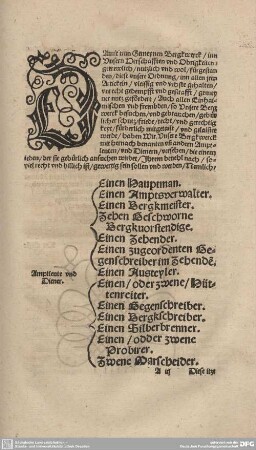 Damit nun Gemeynem Bergkwerck / inn
Unsern Herschafften und Obrigkaiten
gewertlich, nutzlich und wol, fürgestanden,
diese unsere Ordnung, inn allen jren
Artickeln, vleissig und veste gehalten,
unrecht gedempfft und gestrafft, gemeyner
nutz gefördert, Auch allen Einhaimischen
und frembden, so Unsere Bergkwerck
besuchen, und gebrauchen, gebürlicher
schutz, friede, recht, und gerechtigkeyt,
fürderlich mitgeteilt, und gelaistet
werde, haben Wir Unsere Bergkwerck
mit hernach benanten Amptleuten,
und Dienern, versehen, die einem
jden, der sie gebürlich ansuchen wirdet / Jhrem bevehl nach / soviel
recht und billich ist / gewertig sein sollen und werden / Nemlich /
Einen Hauptman.
Einen Amptsverwalter.
Einen Bergkmeister.
Zehen Geschworne
Bergkvorstendige.
Einen Zehender.
Einen zugeordenten Gegenschreiber
im Zehendē.
Amptleute und
Diener.
Einen Austeyler.
Einen / oder zwene / Hüttenreiter.
Einen Gegenschreiber.
Einen Bergkschreiber.
Einen Silberbrenner.
Einen / odder zwene
Probirer.
Zwene Marscheider.
A iij
Diese itzt